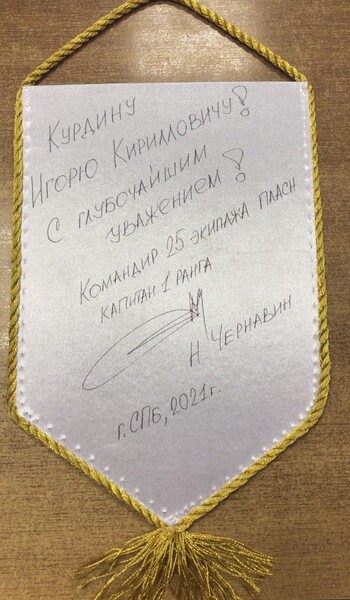 Курдину
Игорю Кирилловичу!
С глубочайшим
уважением!
Командир 25 экипажа ПЛАСН
капитан 1 ранга
Н. Чернавин
г. СПб, 2021 г.